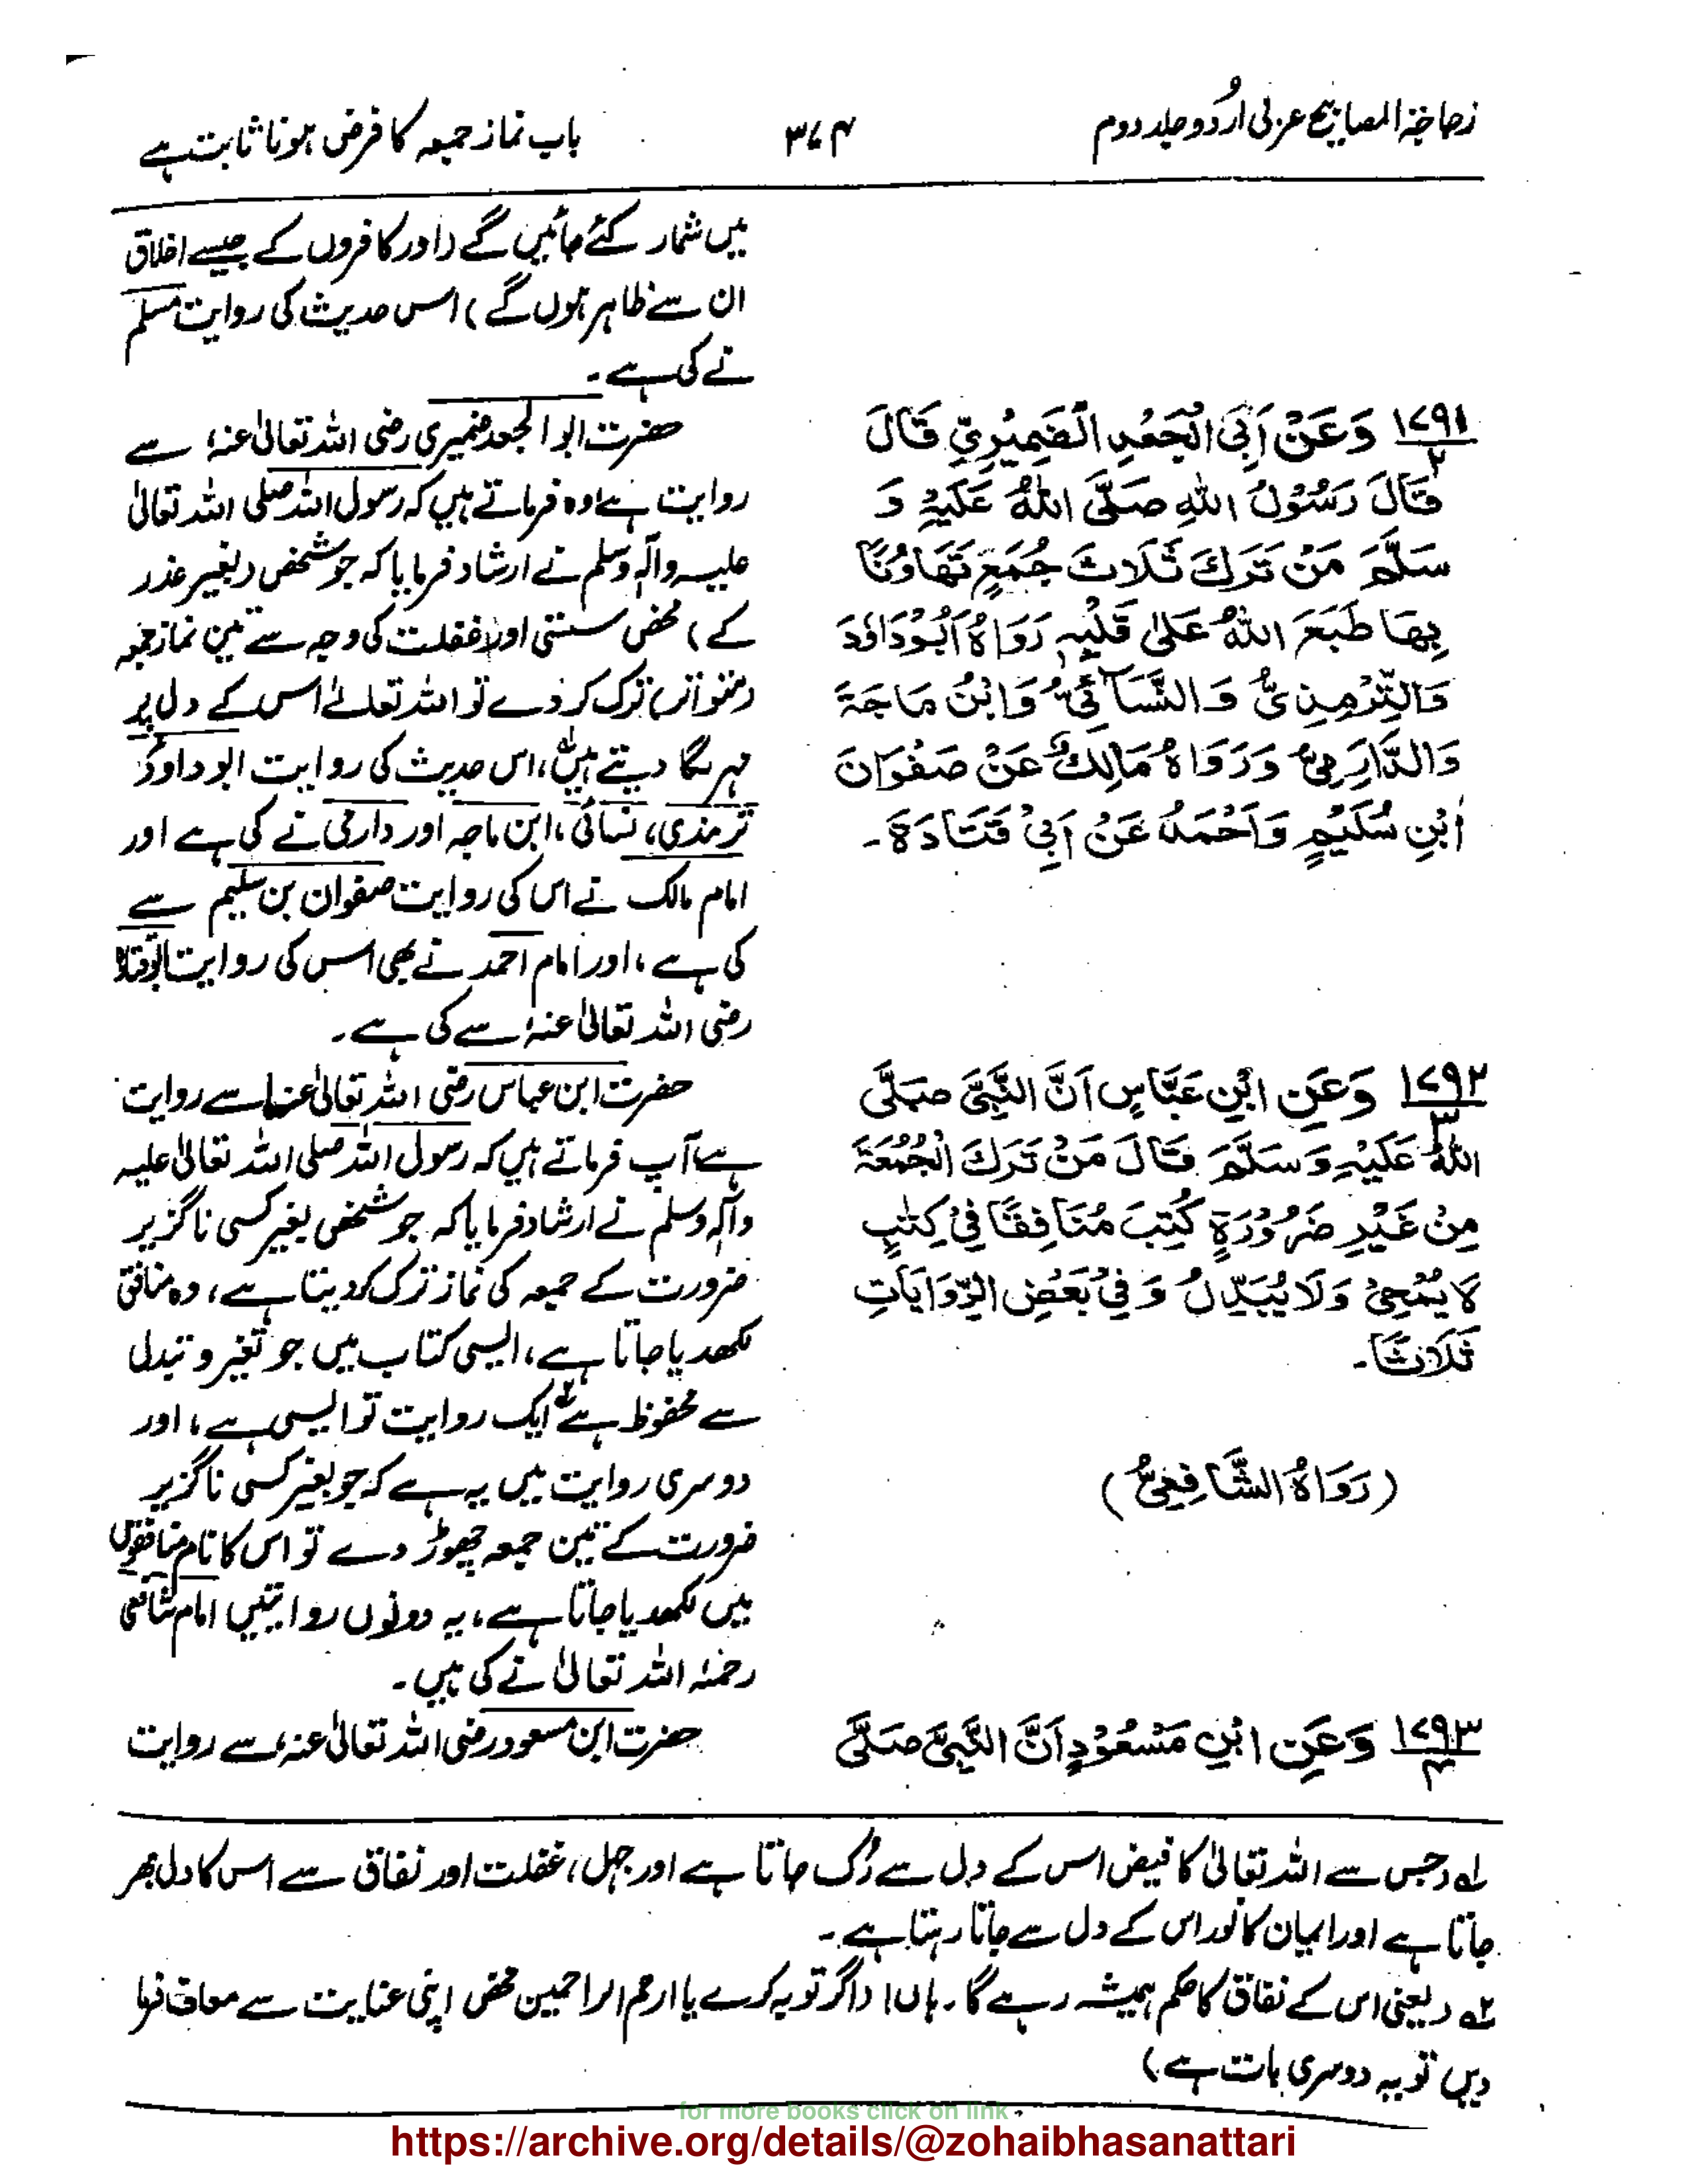 زجاجۃ المصابیح عربی اردو جلد دوم
۳۷۴
باب نماز جمعہ کا فرض ہونا ثابت ہے
میں شمار کئے جائیں گے (اور کافروں کے جیسے اخلاق
ان سے ظاہر ہوں گے) اس حدیث کی روایت مسلم
نے کی ہے۔
۱۷۹۱/۲ وَعَنْ اَبِی الْجَعْدِ الضَّمِیْرِیِّ قَالَ
قَالَ رَسُوْلُ اللّٰهِ صَلَّی اللّٰهُ عَلَیْهِ وَ
سَلَّمَ مَنْ تَرَكَ ثَلَاثَ جُمَعٍ تَهَاوُنًا
بِهَا طَبَعَ اللّٰهُ عَلٰی قَلْبِهٖ رَوَاهُ اَبُوْدَاوٗدَ
وَالتِّرْمِذِیُّ وَالنَّسَآئِیُّ وَابْنُ مَاجَةَ
وَالدَّارَمِیُّ وَرَوَاهُ مَالِكٌ عَنْ صَفْوَانَ
ابْنِ سُلَیْمٍ وَاَحْمَدُ عَنْ اَبِیْ قَتَادَةَ۔
حضرت ابو الجعد ضمیری رضی اللہ تعالیٰ عنہٗ سے
روایت ہے وہ فرماتے ہیں کہ رسول اللہ صلی اللہ تعالیٰ
علیہ وآلہٖ وسلم نے ارشاد فرمایا کہ جو شخص (بغیر عذر
کے) محض سستی اور غفلت کی وجہ سے تین نماز جمعہ
(متواتر) ترک کر دے تو اللہ تعالےٰ اس کے دل پر
مہر لگا دیتے ہیں ؎۱، اس حدیث کی روایت ابو داؤد
ترمذی، نسائی، ابن ماجہ اور دارمی نے کی ہے اور
امام مالک نے اس کی روایت صفوان بن سلیم سے
کی ہے، اور امام احمد نے بھی اس کی روایت ابوقتادہ
رضی اللہ تعالیٰ عنہٗ سے کی ہے۔
۱۷۹۲/۳ وَعَنِ ابْنِ عَبَّاسٍ اَنَّ النَّبِیَّ صَلَّی
اللّٰهُ عَلَیْهِ وَسَلَّمَ قَالَ مَنْ تَرَكَ الْجُمُعَةَ
مِنْ غَیْرِ ضَرُوْرَةٍ كُتِبَ مُنَافِقًا فِیْ كِتٰبٍ
لَا یُمْحٰی وَلَا یُبَدَّلُ وَفِیْ بَعْضِ الرِّوَایَاتِ
ثَلَاثًا۔
(رَوَاهُ الشَّافِعِیُّ)
حضرت ابن عباس رضی اللہ تعالیٰ عنہما سے روایت
ہے آپ فرماتے ہیں کہ رسول اللہ صلی اللہ تعالیٰ علیہ
وآلہٖ وسلم نے ارشاد فرمایا کہ جو شخص بغیر کسی ناگزیر
ضرورت کے جمعہ کی نماز ترک کردیتا ہے، وہ منافق
لکھ دیا جاتا ہے، ایسی کتاب میں جو تغیر و تبدل
سے محفوظ ہے ؎۲ ایک روایت تو ایسی ہے، اور
دوسری روایت میں یہ ہے کہ جو بغیر کسی ناگزیر
ضرورت کے تین جمعہ چھوڑ دے تو اس کا نام منافقوں
میں لکھ دیا جاتا ہے، یہ دونوں روایتیں امام شافعی
رحمۃ اللہ تعالیٰ نے کی ہیں۔
۱۷۹۳/۴ وَعَنِ ابْنِ مَسْعُوْدٍ اَنَّ النَّبِیَّ صَلَّی
حضرت ابن مسعود رضی اللہ تعالیٰ عنہٗ سے روایت
؎۱ (جس سے اللہ تعالیٰ کا فیض اس کے دل سے رُک جاتا ہے اور جہل، غفلت اور نفاق سے اس کا دل بھر
جاتا ہے اور ایمان کا نور اس کے دل سے جاتا رہتا ہے۔
؎۲ (یعنی اس کے نفاق کا حکم ہمیشہ رہے گا۔ ہاں! (اگر توبہ کرے یا ارحم الراحمین محض اپنی عنایت سے معاف فرما
دیں تو یہ دوسری بات ہے)
for more books click on link
https://archive.org/details/@zohaibhasanattari